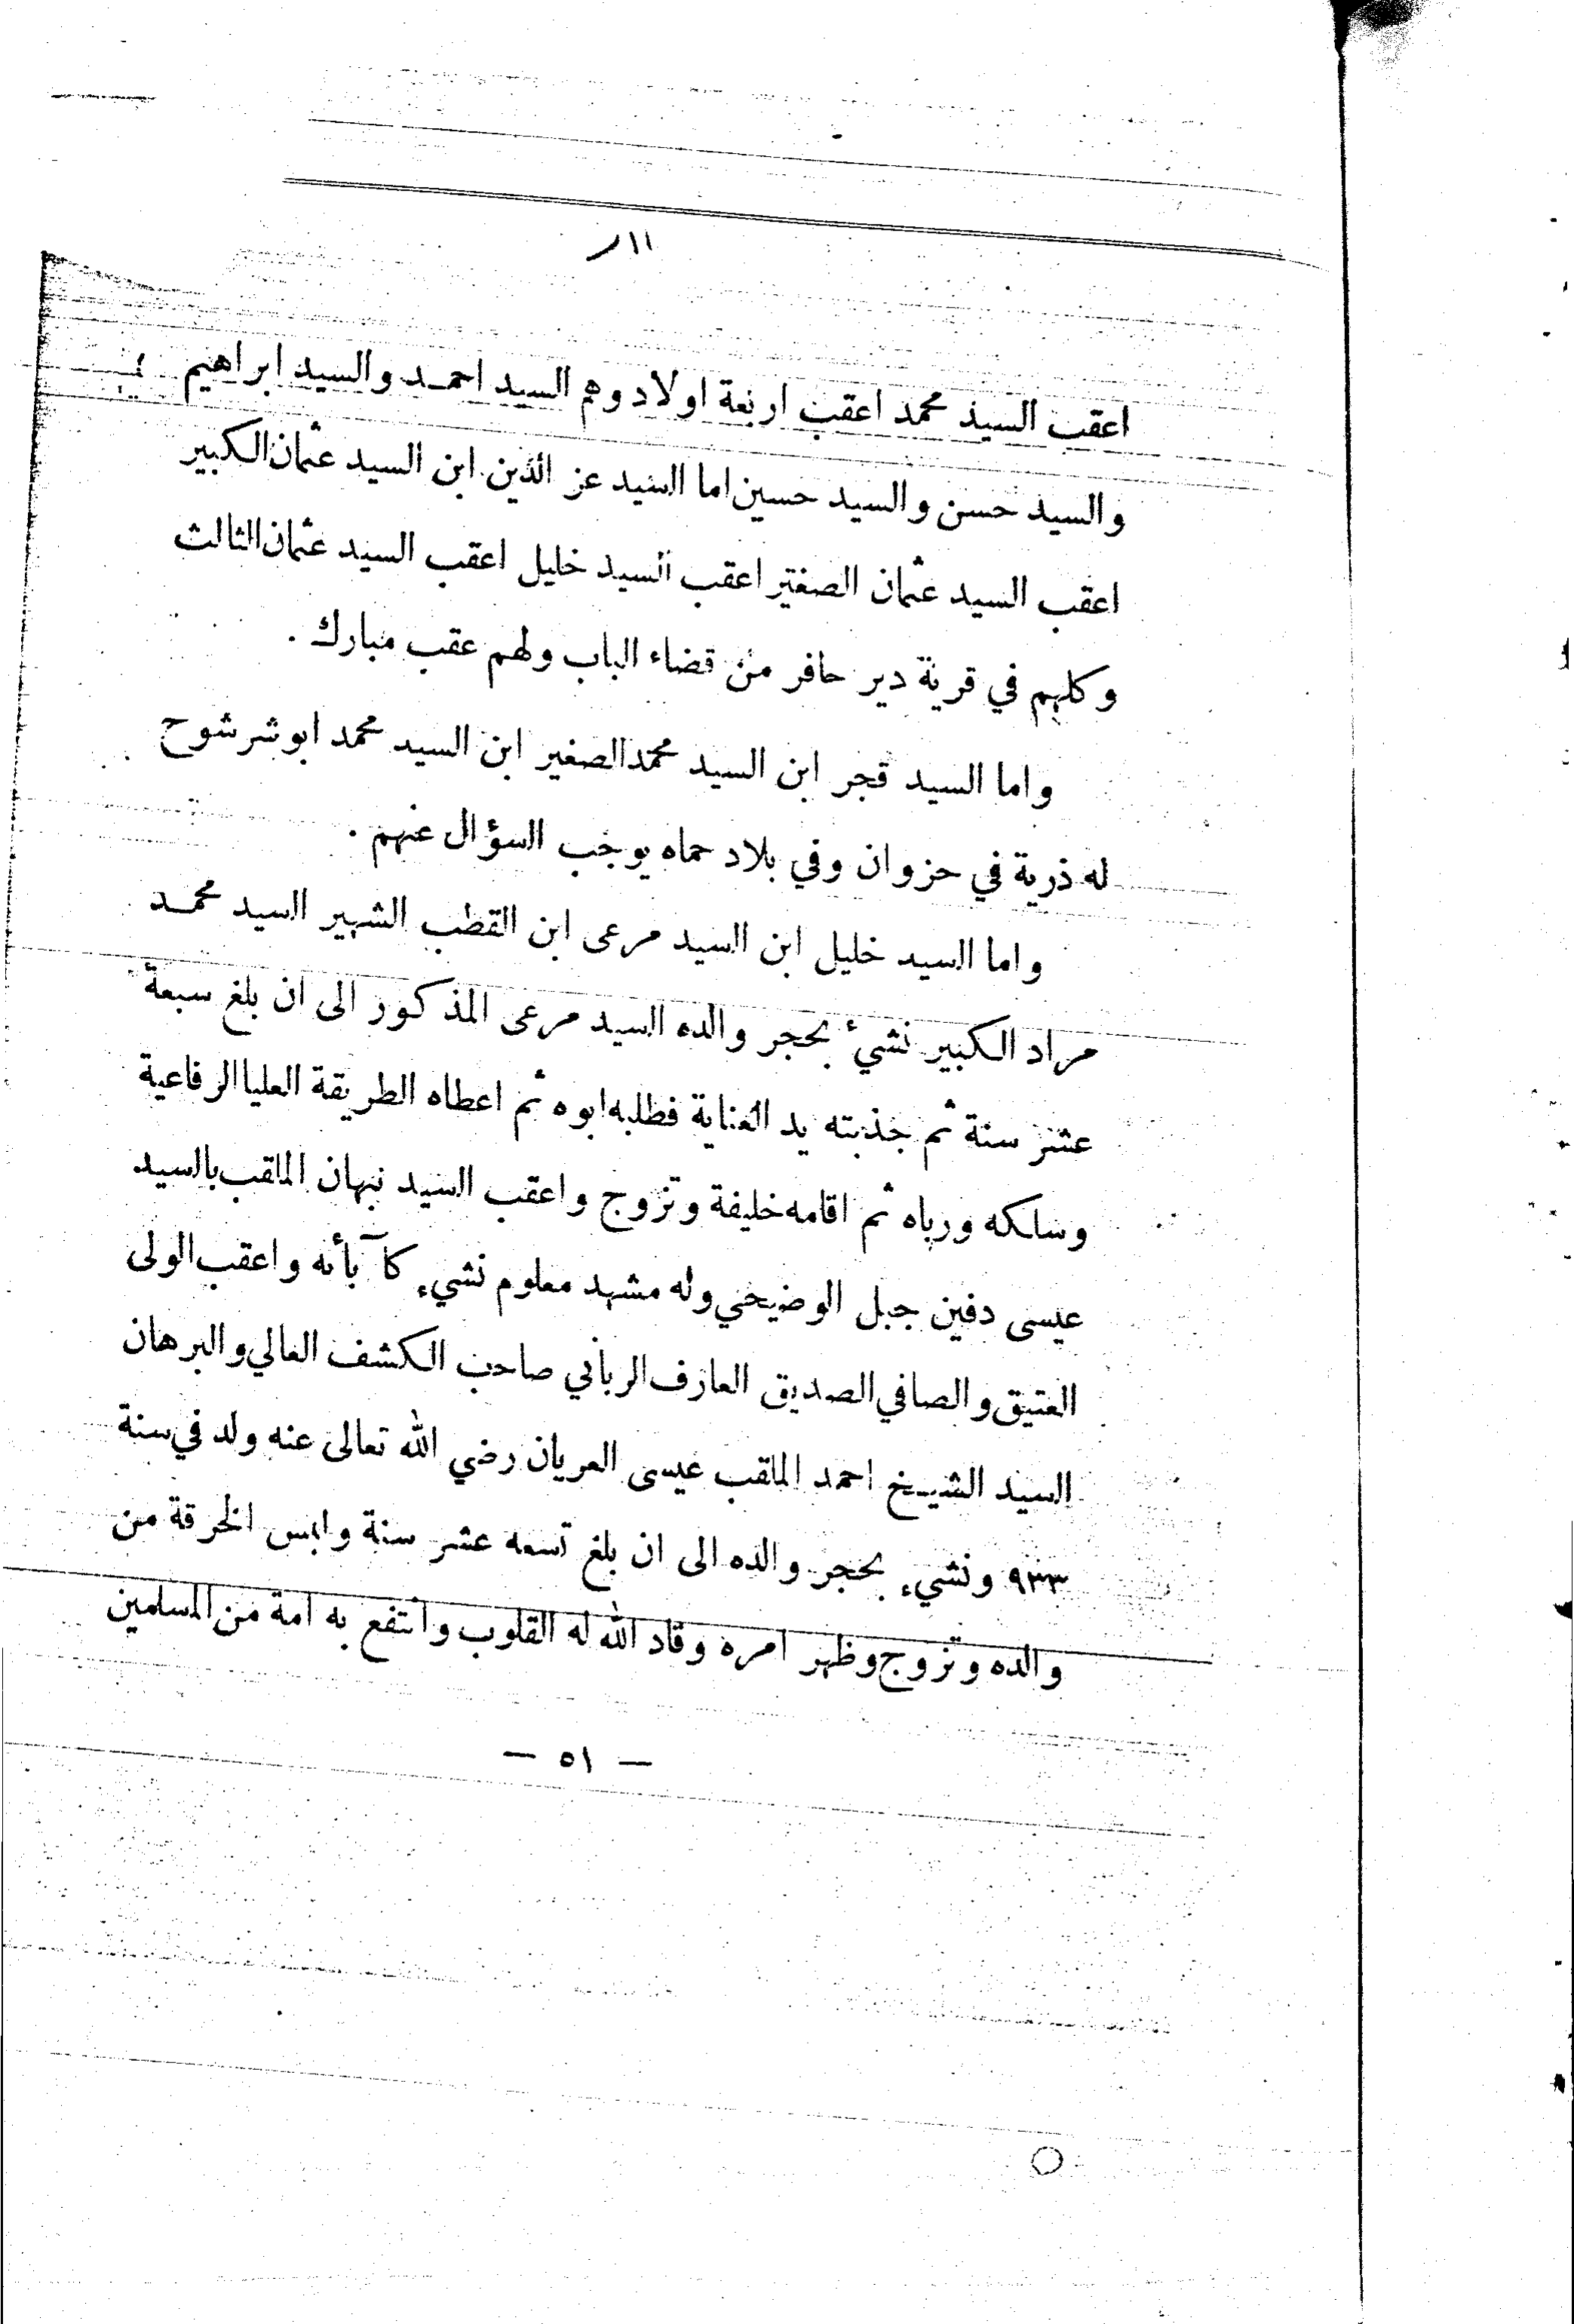 اعقب السيد محمد اعقب اربعة اولاد وهم السيد احمـد والسيد ابراهيم
والسيد حسن والسيد حسين اما السيد عز الدين ابن السيد عثمان الكبير
اعقب السيد عثمان الصغير اعقب السيد خليل اعقب السيد عثمان الثالث
وكلهم في قرية دير حافر من قضاء الباب ولهم عقب مبارك .
واما السيد قجر ابن السيد محمد الصغير ابن السيد محمد ابو شرشوح
له ذرية في حزوان وفي بلاد حماه يوجب السؤال عنهم .
واما السيد خليل ابن السيد مرعى ابن القطب الشهير السيد محمـد
مراد الكبير نشيء بحجر والده السيد مرعى المذكور الى ان بلغ سبعة
عشر سنة ثم جذبته يد العناية فطلبه ابوه ثم اعطاه الطريقة العليا الرفاعية
وسلكه ورباه ثم اقامه خليفة وتزوج واعقب السيد نبهان الملقب بالسيد
عيسى دفين جبل الوضيحي وله مشهد معلوم نشيء كآبأئه واعقب الولى
العتيق والصافي الصديق العارف الرباني صاحب الكشف العالي والبرهان
السيد الشيـخ احمد الملقب عيسى العريان رضي الله تعالى عنه ولد في سنة
٩٣٣ ونشيء بحجر والده الى ان بلغ تسعه عشر سنة ولبس الخرقة من
والده وتزوج وظهر امره وقاد الله له القلوب وانتفع به امة من المسلمين
— ٥١ —